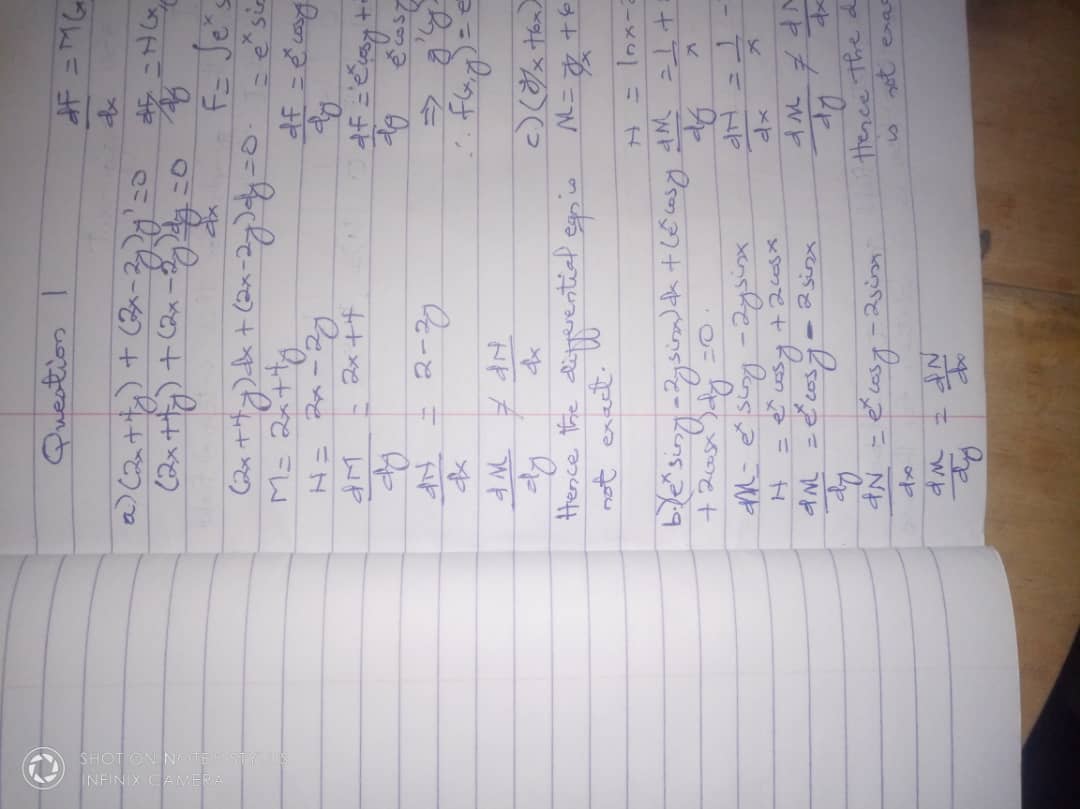 Question 1
a) (2x+4y) + (2x-2y)y' = 0
(2x+4y) + (2x-2y)dy/dx = 0
(2x+4y)dx + (2x-2y)dy = 0.
M = 2x+4y
N = 2x-2y
dM/dy = 2x+4
dN/dx = 2-2y
dM/dy ≠ dN/dx
Hence the differential eqn is
not exact.
b.(e^x siny - 2y sinx)dx + (e^x cosy
+ 2cosx)dy = 0.
dM = e^x siny - 2y sinx
N = e^x cosy + 2cosx
dM/dy = e^x cosy - 2sinx
dN/dx = e^x cosy - 2sinx
dM/dy = dN/dx
dF/dx = M(x
dF/dy = N(x,
F = ∫e^x s
= e^x sin
dF/dy = e^x cosy
dF/dy = e^x cosy +
e^x cosy
=> g'(y)
∴ f(x,y) = e
c) (y/x + 6x)
M = y/x + 6
N = lnx - 2
dM/dy = 1/x +
dN/dx = 1/x -
dM/dy ≠ dN/dx
Hence the d
is not exac
SHOT ON NOTE
INFINIX CAMERA